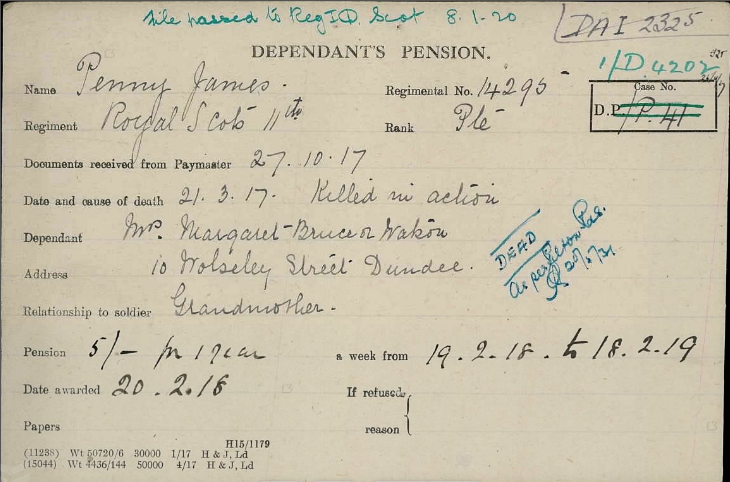 file passed to Reg I.Q. Scot 8.1.20
DAI 2325
DEPENDANT'S PENSION.
1/D.4202
Name Penny James.
Regimental No. 14295
Case No.
D.P. 1P.41
Regiment Royal Scots 11th
Rank Pte
Documents received from Paymaster 27.10.17
Date and cause of death 21.3.17. Killed in action
Dependant Mrs. Margaret Bruce or Watson
DEAD
Address 10 Wolseley Street Dundee.
As per
Relationship to soldier Grandmother.
Pension 5/- for 1 year a week from 19.2.18. to 18.2.19
Date awarded 20.2.18
If refused,
reason
Papers
H15/1179
(11238) Wt 50720/6 30000 1/17 H & J, Ld
(15044) Wt 4436/144 50000 4/17 H & J, Ld